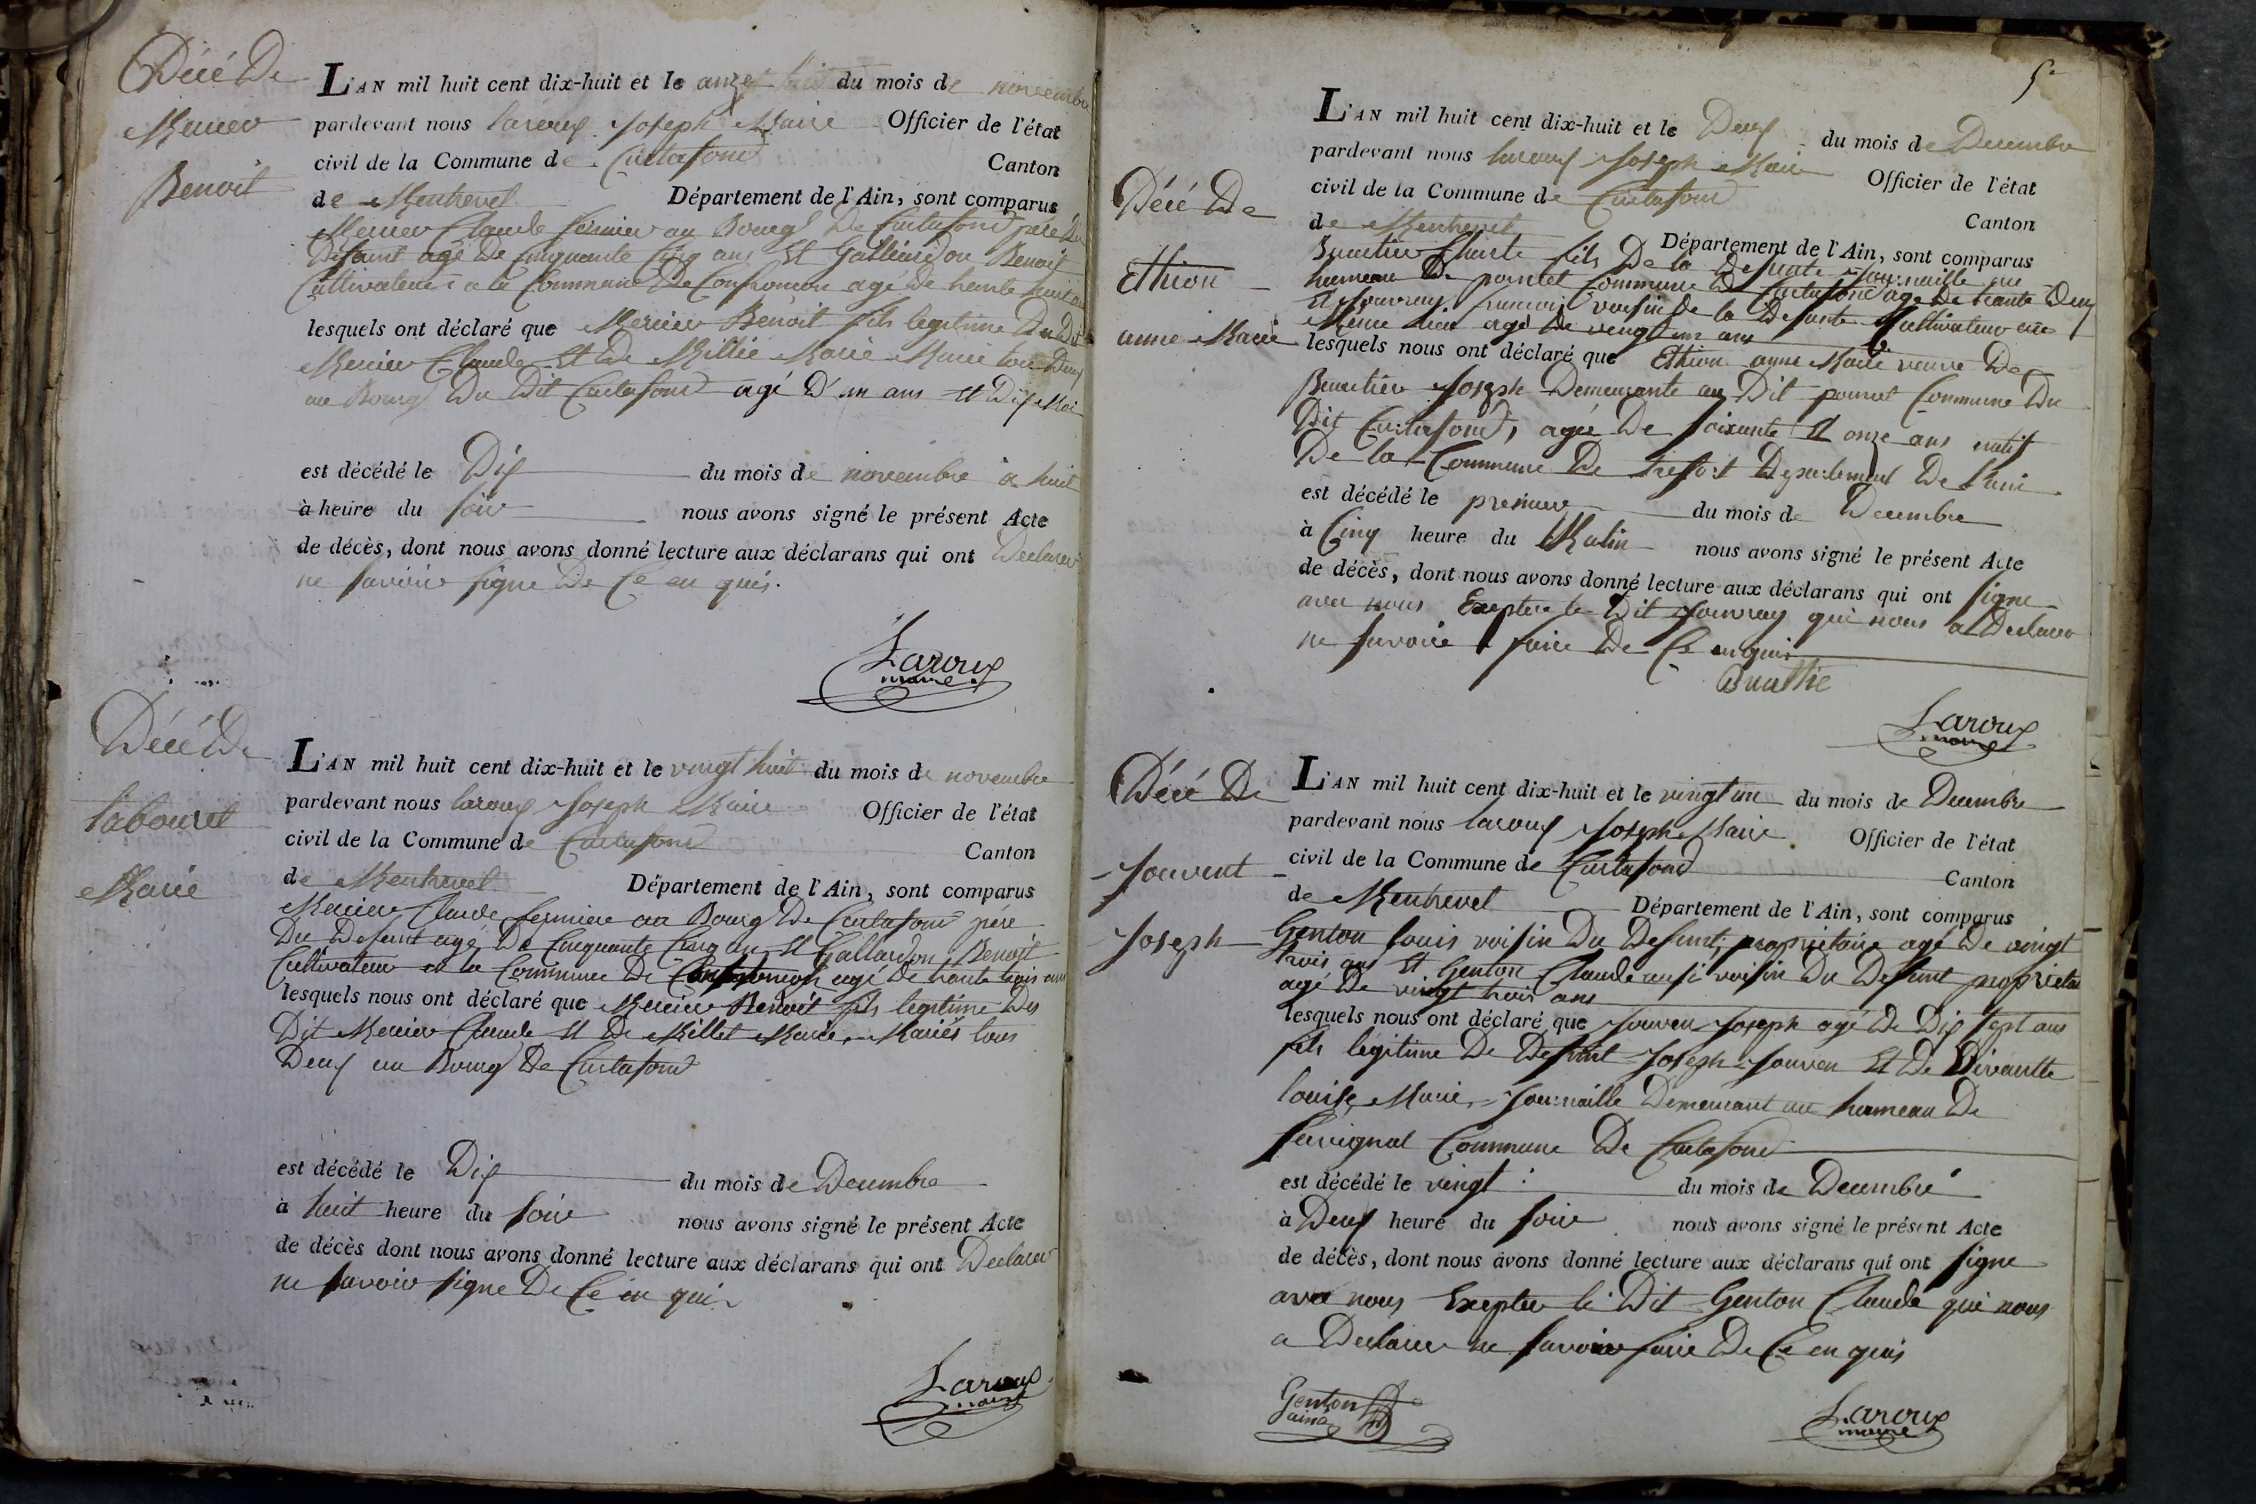 Décé De
Mercier
Benoit
L'AN mil huit cent dix-huit et le onze du mois de novembre
pardevant nous laroux Joseph Maire Officier de l'état
civil de la Commune de Curtafond Canton
de Montrevel Département de l'Ain, sont comparus
Mercier Claude fermier au Bourg De Curtafond pere Du
Defaunt agé De Cinquante Cinq ans Et Galliardon Benoit
Cultivateur a la Commune De Confrancon agé de trente huit ans
lesquels ont déclaré que Mercier Benoit fils legitime Du Dit
Mercier Claude Et De Millié Marie Marié tous Deux
au Bourg Du Dit Curtafond agé D'un ans et Dix Moi
est décédé le Dix du mois de novembre a huit
à heure du soir nous avons signé le présent Acte
de décès, dont nous avons donné lecture aux déclarans qui ont Declarer
ne savoire signe De Ce en quis.
Laroux
maire
Décé De
labouret
Marie
L'AN mil huit cent dix-huit et le vingt huit du mois de novembre
pardevant nous laroux Joseph Maire Officier de l'état
civil de la Commune de Curtafond Canton
de Montrevel Département de l'Ain, sont comparus
Mercier Claude fermier au Bourg De Curtafond pere
Du Defunt agé De Cinquante Cinq an Et Gallardon Benoit
Cultivateur a la Commune De Confrancon agé de trante huis ans
lesquels nous ont déclaré que Mercier Benoit fils legitime Des
Dit Mercier Claude Et De Millet Marie Mariés tous
Deux au Bourg De Curtafond
est décédé le Dix du mois de Decembre
à huit heure du soir nous avons signé le présent Acte
de décès dont nous avons donné lecture aux déclarans qui ont Declarer
ne savoir signe De Ce en quis
Laroux
maire
5e
Décé De
Ethion
anne Marie
L'AN mil huit cent dix-huit et le Deux du mois de Decembre
pardevant nous laroux Joseph Maire Officier de l'état
civil de la Commune de Curtafond Canton
de Montrevel Département de l'Ain, sont comparus
Buattier Claude fils De la Defunte Journaille au
hameau De poncet Commune De Curtafond agé De trante Deux
Et Jouvray francois voisin de la Defunte Cultivateur au
Meme lieu agé De vingt un ans
lesquels nous ont déclaré que Ethion anne Marie veuve De
Buattier Joseph Demeurante au Dit poncet Commune Du
Dit Curtafond, agée De soixante Et onze ans natif
De la Commune De trefort Departement De l'ain
est décédé le premier du mois de Decembre
à Cinq heure du Matin nous avons signé le présent Acte
de décès, dont nous avons donné lecture aux déclarans qui ont signe
avec nous Exepter le Dit Jouvray qui nous a Declarer
ne savoire faire De Ce en quis
Buattié
Laroux
maire
Décé De
Jouvent
Joseph
L'AN mil huit cent dix-huit et le vingt un du mois de Decembre
pardevant nous laroux Joseph Maire Officier de l'état
civil de la Commune de Curtafond Canton
de Montrevel Département de l'Ain, sont comparus
Genton louis voisin Du Defunt, proprietaire agé De vingt
trois ans Et Genton Claude ausi voisin Du Defunt proprietaire
agé De vingt trois ans
lesquels nous ont déclaré que Jouven Joseph agé De Dix sept ans
fils légitime De Defunt Joseph Jouven Et De Vivante
louise Marie Journaille Demeurant au hameau De
savignat Commune De Curtafond
est décédé le vingt du mois de Decembre
à Deux heure du soire nous avons signé le présent Acte
de décès, dont nous avons donné lecture aux déclarans qui ont signe
avec nous Exepter le Dit Genton Claude qui nous
a Declarer ne savoire faire De Ce en quis
Genton
ainé
Laroux
maire